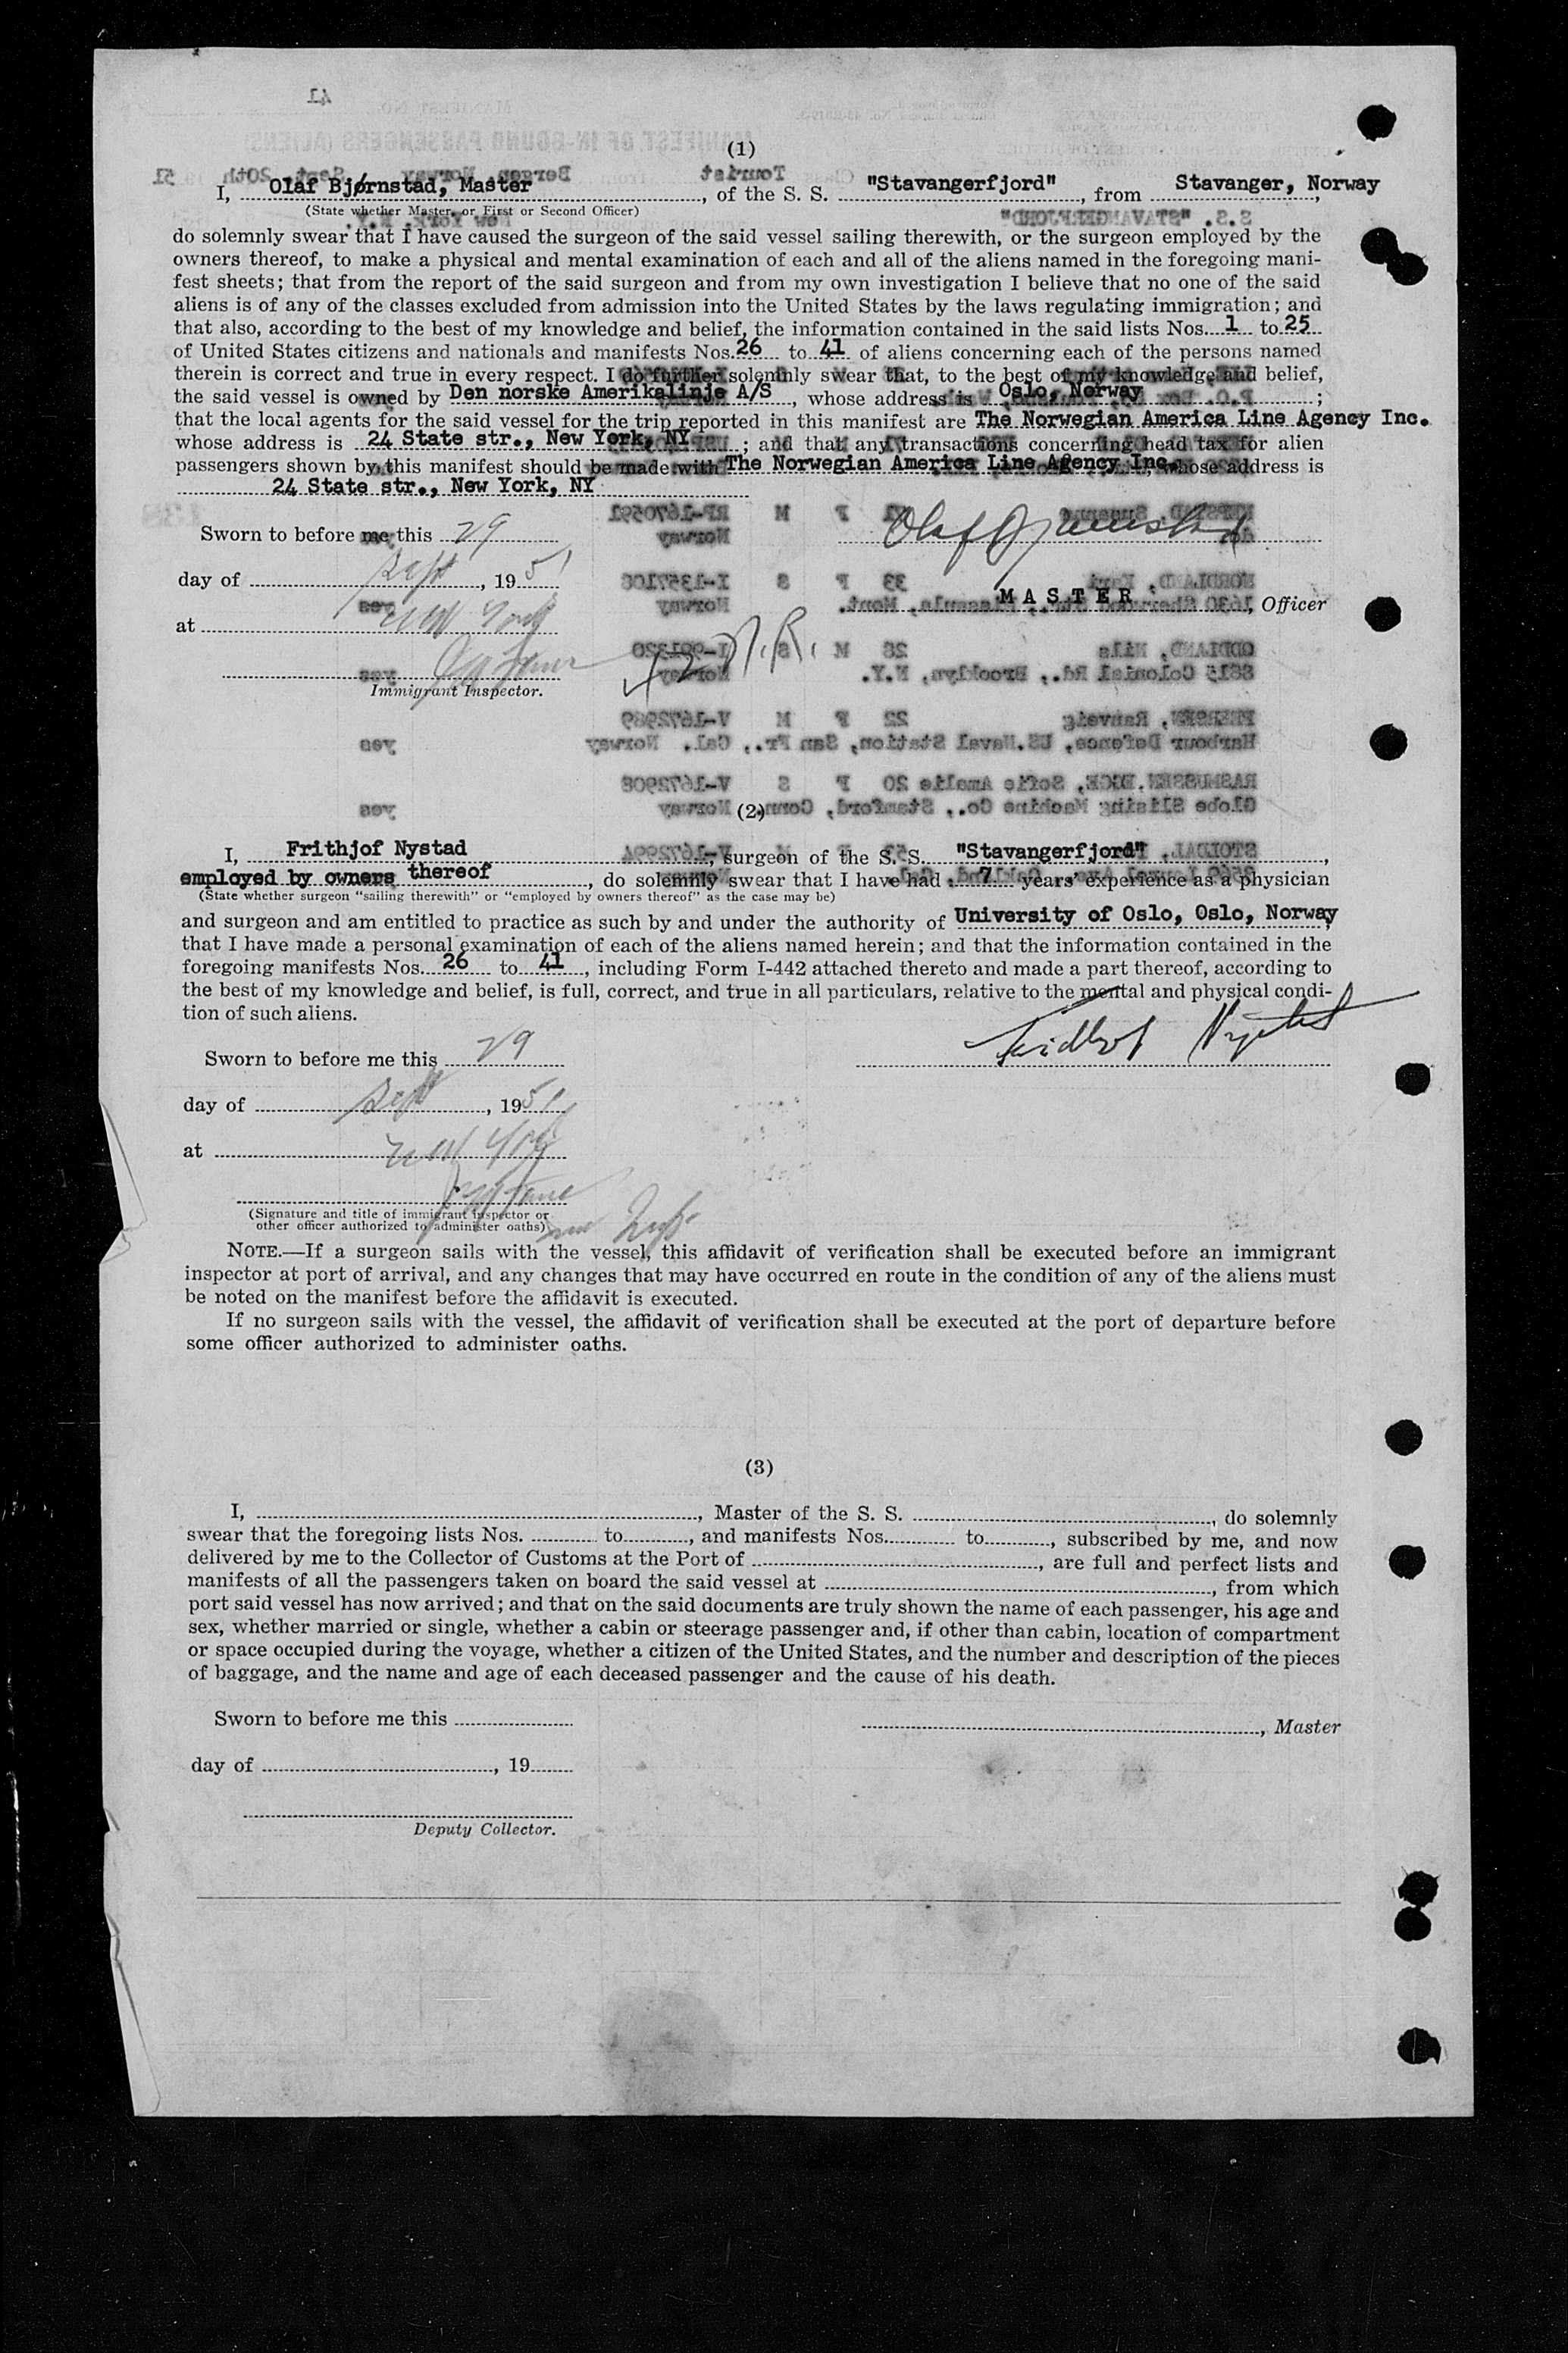 (1)
I, Olaf Bjørnstad, Master, of the S. S. "Stavangerfjord", from Stavanger, Norway,
(State whether Master, or First or Second Officer)
do solemnly swear that I have caused the surgeon of the said vessel sailing therewith, or the surgeon employed by the
owners thereof, to make a physical and mental examination of each and all of the aliens named in the foregoing mani-
fest sheets; that from the report of the said surgeon and from my own investigation I believe that no one of the said
aliens is of any of the classes excluded from admission into the United States by the laws regulating immigration; and
that also, according to the best of my knowledge and belief, the information contained in the said lists Nos. 1 to 25
of United States citizens and nationals and manifests Nos. 26 to 41 of aliens concerning each of the persons named
therein is correct and true in every respect. I do further solemnly swear that, to the best of my knowledge and belief,
the said vessel is owned by Den norske Amerikalinje A/S, whose address is Oslo, Norway;
that the local agents for the said vessel for the trip reported in this manifest are The Norwegian America Line Agency Inc.
whose address is 24 State str., New York, NY; and that any transactions concerning head tax for alien
passengers shown by this manifest should be made with The Norwegian America Line Agency Inc., whose address is
24 State str., New York, NY
Sworn to before me this 29
Olaf Bjørnstad
day of Sept, 1951
MASTER, Officer
at New York
42 N.R.
Immigrant Inspector.
(2)
I, Frithjof Nystad, surgeon of the S. S. "Stavangerfjord",
employed by owners thereof, do solemnly swear that I have had 7 years' experience as a physician
(State whether surgeon "sailing therewith" or "employed by owners thereof" as the case may be)
and surgeon and am entitled to practice as such by and under the authority of University of Oslo, Oslo, Norway,
that I have made a personal examination of each of the aliens named herein; and that the information contained in the
foregoing manifests Nos. 26 to 41, including Form I-442 attached thereto and made a part thereof, according to
the best of my knowledge and belief, is full, correct, and true in all particulars, relative to the mental and physical condi-
tion of such aliens.
Sworn to before me this 29
Fridthjof Nystad
day of Sept, 1951
at New York
(Signature and title of immigrant inspector or
other officer authorized to administer oaths)
NOTE.—If a surgeon sails with the vessel, this affidavit of verification shall be executed before an immigrant
inspector at port of arrival, and any changes that may have occurred en route in the condition of any of the aliens must
be noted on the manifest before the affidavit is executed.
If no surgeon sails with the vessel, the affidavit of verification shall be executed at the port of departure before
some officer authorized to administer oaths.
(3)
I, , Master of the S. S. , do solemnly
swear that the foregoing lists Nos. to , and manifests Nos. to , subscribed by me, and now
delivered by me to the Collector of Customs at the Port of , are full and perfect lists and
manifests of all the passengers taken on board the said vessel at , from which
port said vessel has now arrived; and that on the said documents are truly shown the name of each passenger, his age and
sex, whether married or single, whether a cabin or steerage passenger and, if other than cabin, location of compartment
or space occupied during the voyage, whether a citizen of the United States, and the number and description of the pieces
of baggage, and the name and age of each deceased passenger and the cause of his death.
Sworn to before me this
, Master
day of , 19
Deputy Collector.